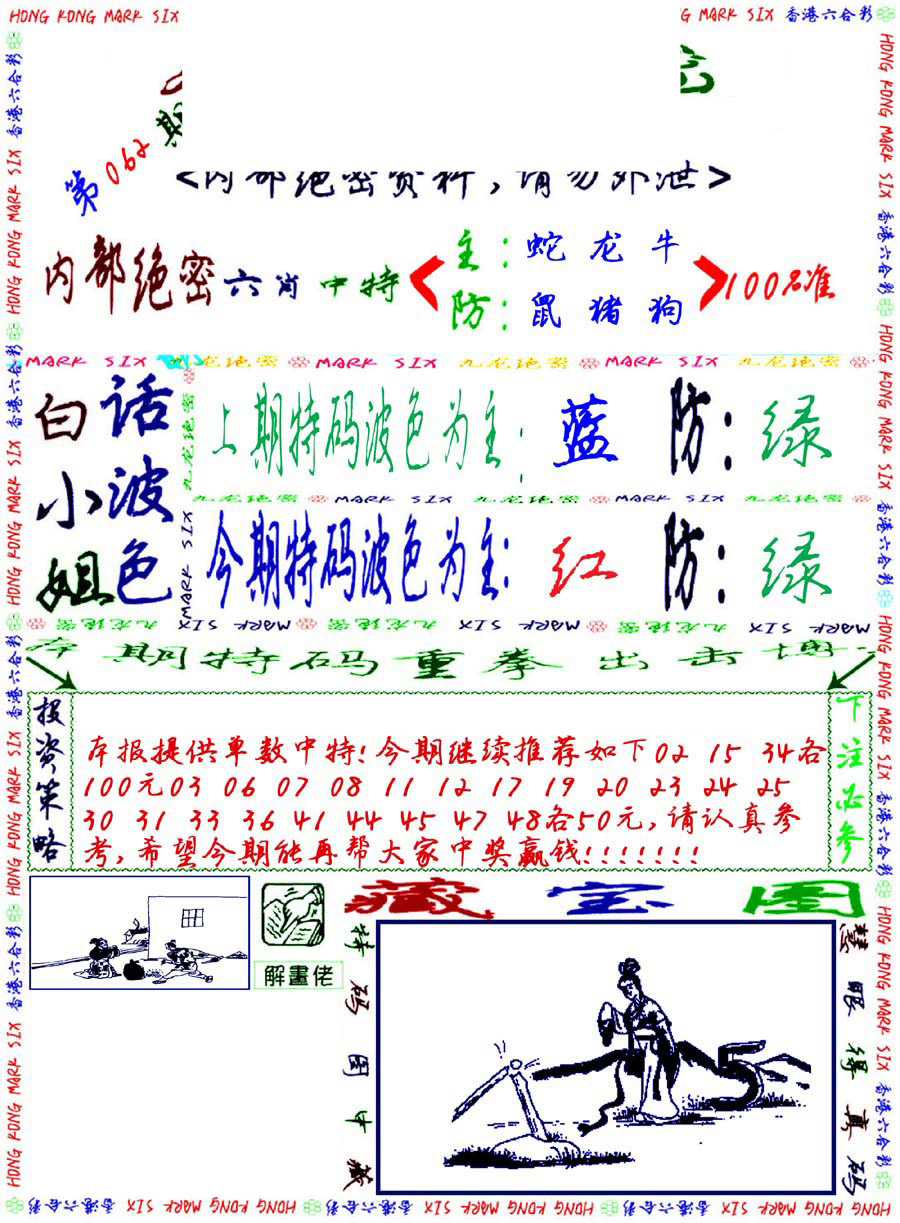 HONG KONG MARK SIX
G MARK SIX 香港六合彩
第062期
<内部绝密资料,请勿外泄>
内部绝密六肖中特
主:蛇龙牛
防:鼠猪狗
100%准
MARK SIX 九龙绝密 MARK SIX 九龙绝密 MARK SIX 九龙绝密
白话
小波
姐色
上期特码波色为主:蓝 防:绿
九龙绝密 MARK SIX 九龙绝密 MARK SIX 九龙绝密
今期特码波色为主:红 防:绿
MARK SIX 九龙绝密 MARK SIX 九龙绝密 MARK SIX 九龙绝密
期特码重拳出击
投资策略
本报提供单数中特!今期继续推荐如下02 15 34各
100元03 06 07 08 11 12 17 19 20 23 24 25
30 31 33 36 41 44 45 47 48各50元,请认真参
考,希望今期能再帮大家中奖赢钱!!!!!!!
下注必参
藏宝图
解畫佬
特码图中藏
慧眼得真码
HONG KONG MARK SIX 香港六合彩